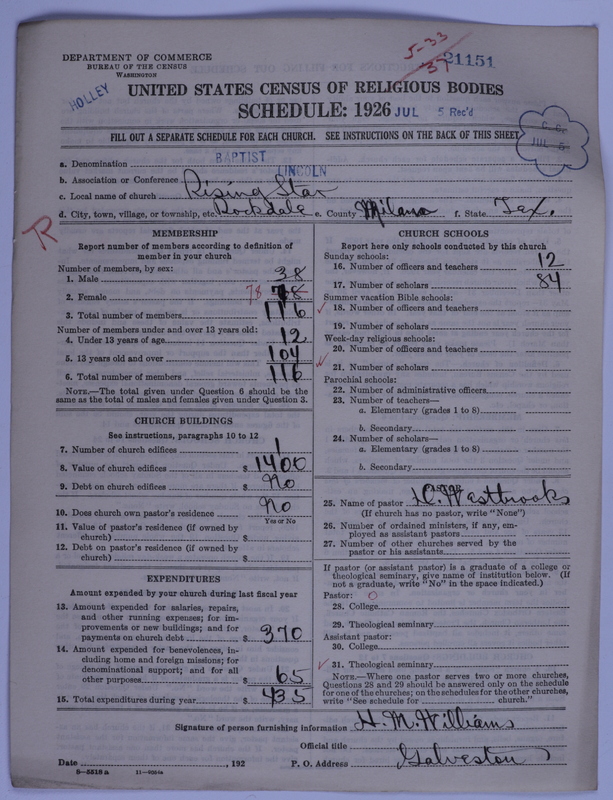 DEPARTMENT OF COMMERCE
BUREAU OF THE CENSUS
WASHINGTON
HOLLEY
5-33
37
21151
UNITED STATES CENSUS OF RELIGIOUS BODIES
SCHEDULE: 1926
JUL 5 Rec'd
FILL OUT A SEPARATE SCHEDULE FOR EACH CHURCH. SEE INSTRUCTIONS ON THE BACK OF THIS SHEET
JUL 5
a. Denomination BAPTIST
b. Association or Conference LINCOLN
c. Local name of church Rising Star
d. City, town, village, or township, etc. Rockdale e. County Milano f. State Tex.
R
MEMBERSHIP
Report number of members according to definition of
member in your church
Number of members, by sex:
1. Male 38
2. Female 78 78
3. Total number of members 116
Number of members under and over 13 years old:
4. Under 13 years of age 12
5. 13 years old and over 104
6. Total number of members 116
NOTE.—The total given under Question 6 should be the
same as the total of males and females given under Question 3.
CHURCH BUILDINGS
See instructions, paragraphs 10 to 12
7. Number of church edifices 1
8. Value of church edifices $ 1400
9. Debt on church edifices $ No
10. Does church own pastor's residence No
Yes or No
11. Value of pastor's residence (if owned by
church) $
12. Debt on pastor's residence (if owned by
church) $
EXPENDITURES
Amount expended by your church during last fiscal year
13. Amount expended for salaries, repairs,
and other running expenses; for im-
provements or new buildings; and for
payments on church debt $ 370
14. Amount expended for benevolences, in-
cluding home and foreign missions; for
denominational support; and for all
other purposes $ 65
15. Total expenditures during year $ 435
CHURCH SCHOOLS
Report here only schools conducted by this church
Sunday schools:
16. Number of officers and teachers 12
17. Number of scholars 84
Summer vacation Bible schools:
18. Number of officers and teachers
19. Number of scholars
Week-day religious schools:
20. Number of officers and teachers
21. Number of scholars
Parochial schools:
22. Number of administrative officers
23. Number of teachers—
a. Elementary (grades 1 to 8)
b. Secondary
24. Number of scholars—
a. Elementary (grades 1 to 8)
b. Secondary
25. Name of pastor Westbrooks
(If church has no pastor, write "None")
26. Number of ordained ministers, if any, em-
ployed as assistant pastors
27. Number of other churches served by the
pastor or his assistants
If pastor (or assistant pastor) is a graduate of a college or
theological seminary, give name of institution below. (If
not a graduate, write "No" in the space indicated.)
Pastor: O
28. College
29. Theological seminary
Assistant pastor:
30. College
31. Theological seminary
NOTE.—Where one pastor serves two or more churches,
Questions 28 and 29 should be answered only on the schedule
for one of the churches; on the schedules for the other churches,
write "See schedule for church."
Signature of person furnishing information H. M. Williams
Official title
Date , 192 P. O. Address Galveston
8—5518 a 11—4064a